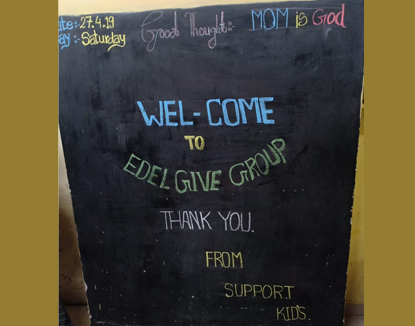 ate: 27.4.19 Good Thought:- MOM is God
ay :- Saturday
WEL-COME
TO
EDEL GIVE GROUP
THANK YOU.
FROM
SUPPORT
KIDS.